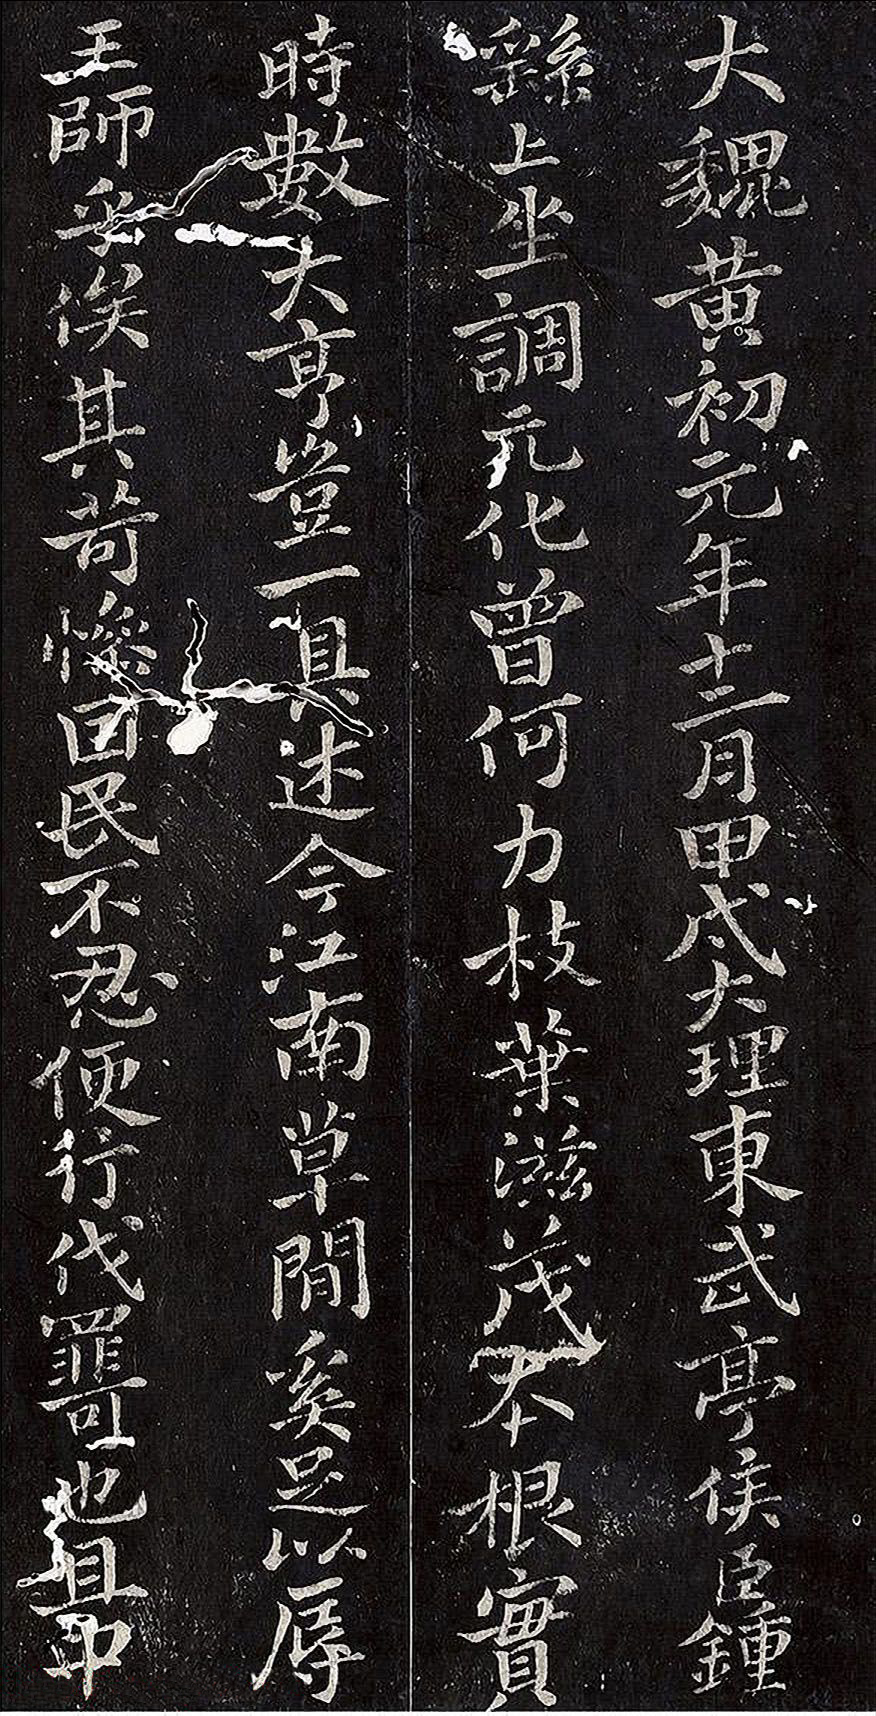 大魏黄初元年十二月甲戌大理東武亭侯臣鍾
繇上坐調元化曾何力枝葉滋茂本根實
時數大亨豈一具述今江南草間奚足以辱
王師乎俟其苛慘困民不忍便行伐罪可也且印